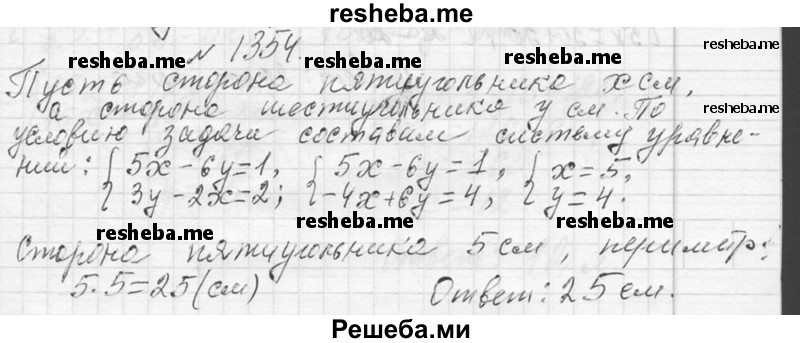 resheba.me
№ 1354
resheba.me resheba.me
Пусть сторона пятиугольника x см,
resheba.me
а сторона шестиугольника y см. По
условию задачи составим систему уравне-
resheba.me resheba.me
ний: { 5x - 6y = 1, { 5x - 6y = 1, { x = 5,
{ 3y - 2x = 2; { -4x + 6y = 4, { y = 4.
resheba.me resheba.me resheba.me
Сторона пятиугольника 5 см, периметр:
5·5=25(см) Ответ: 25 см.
resheba.me resheba.me
Решеба.ми